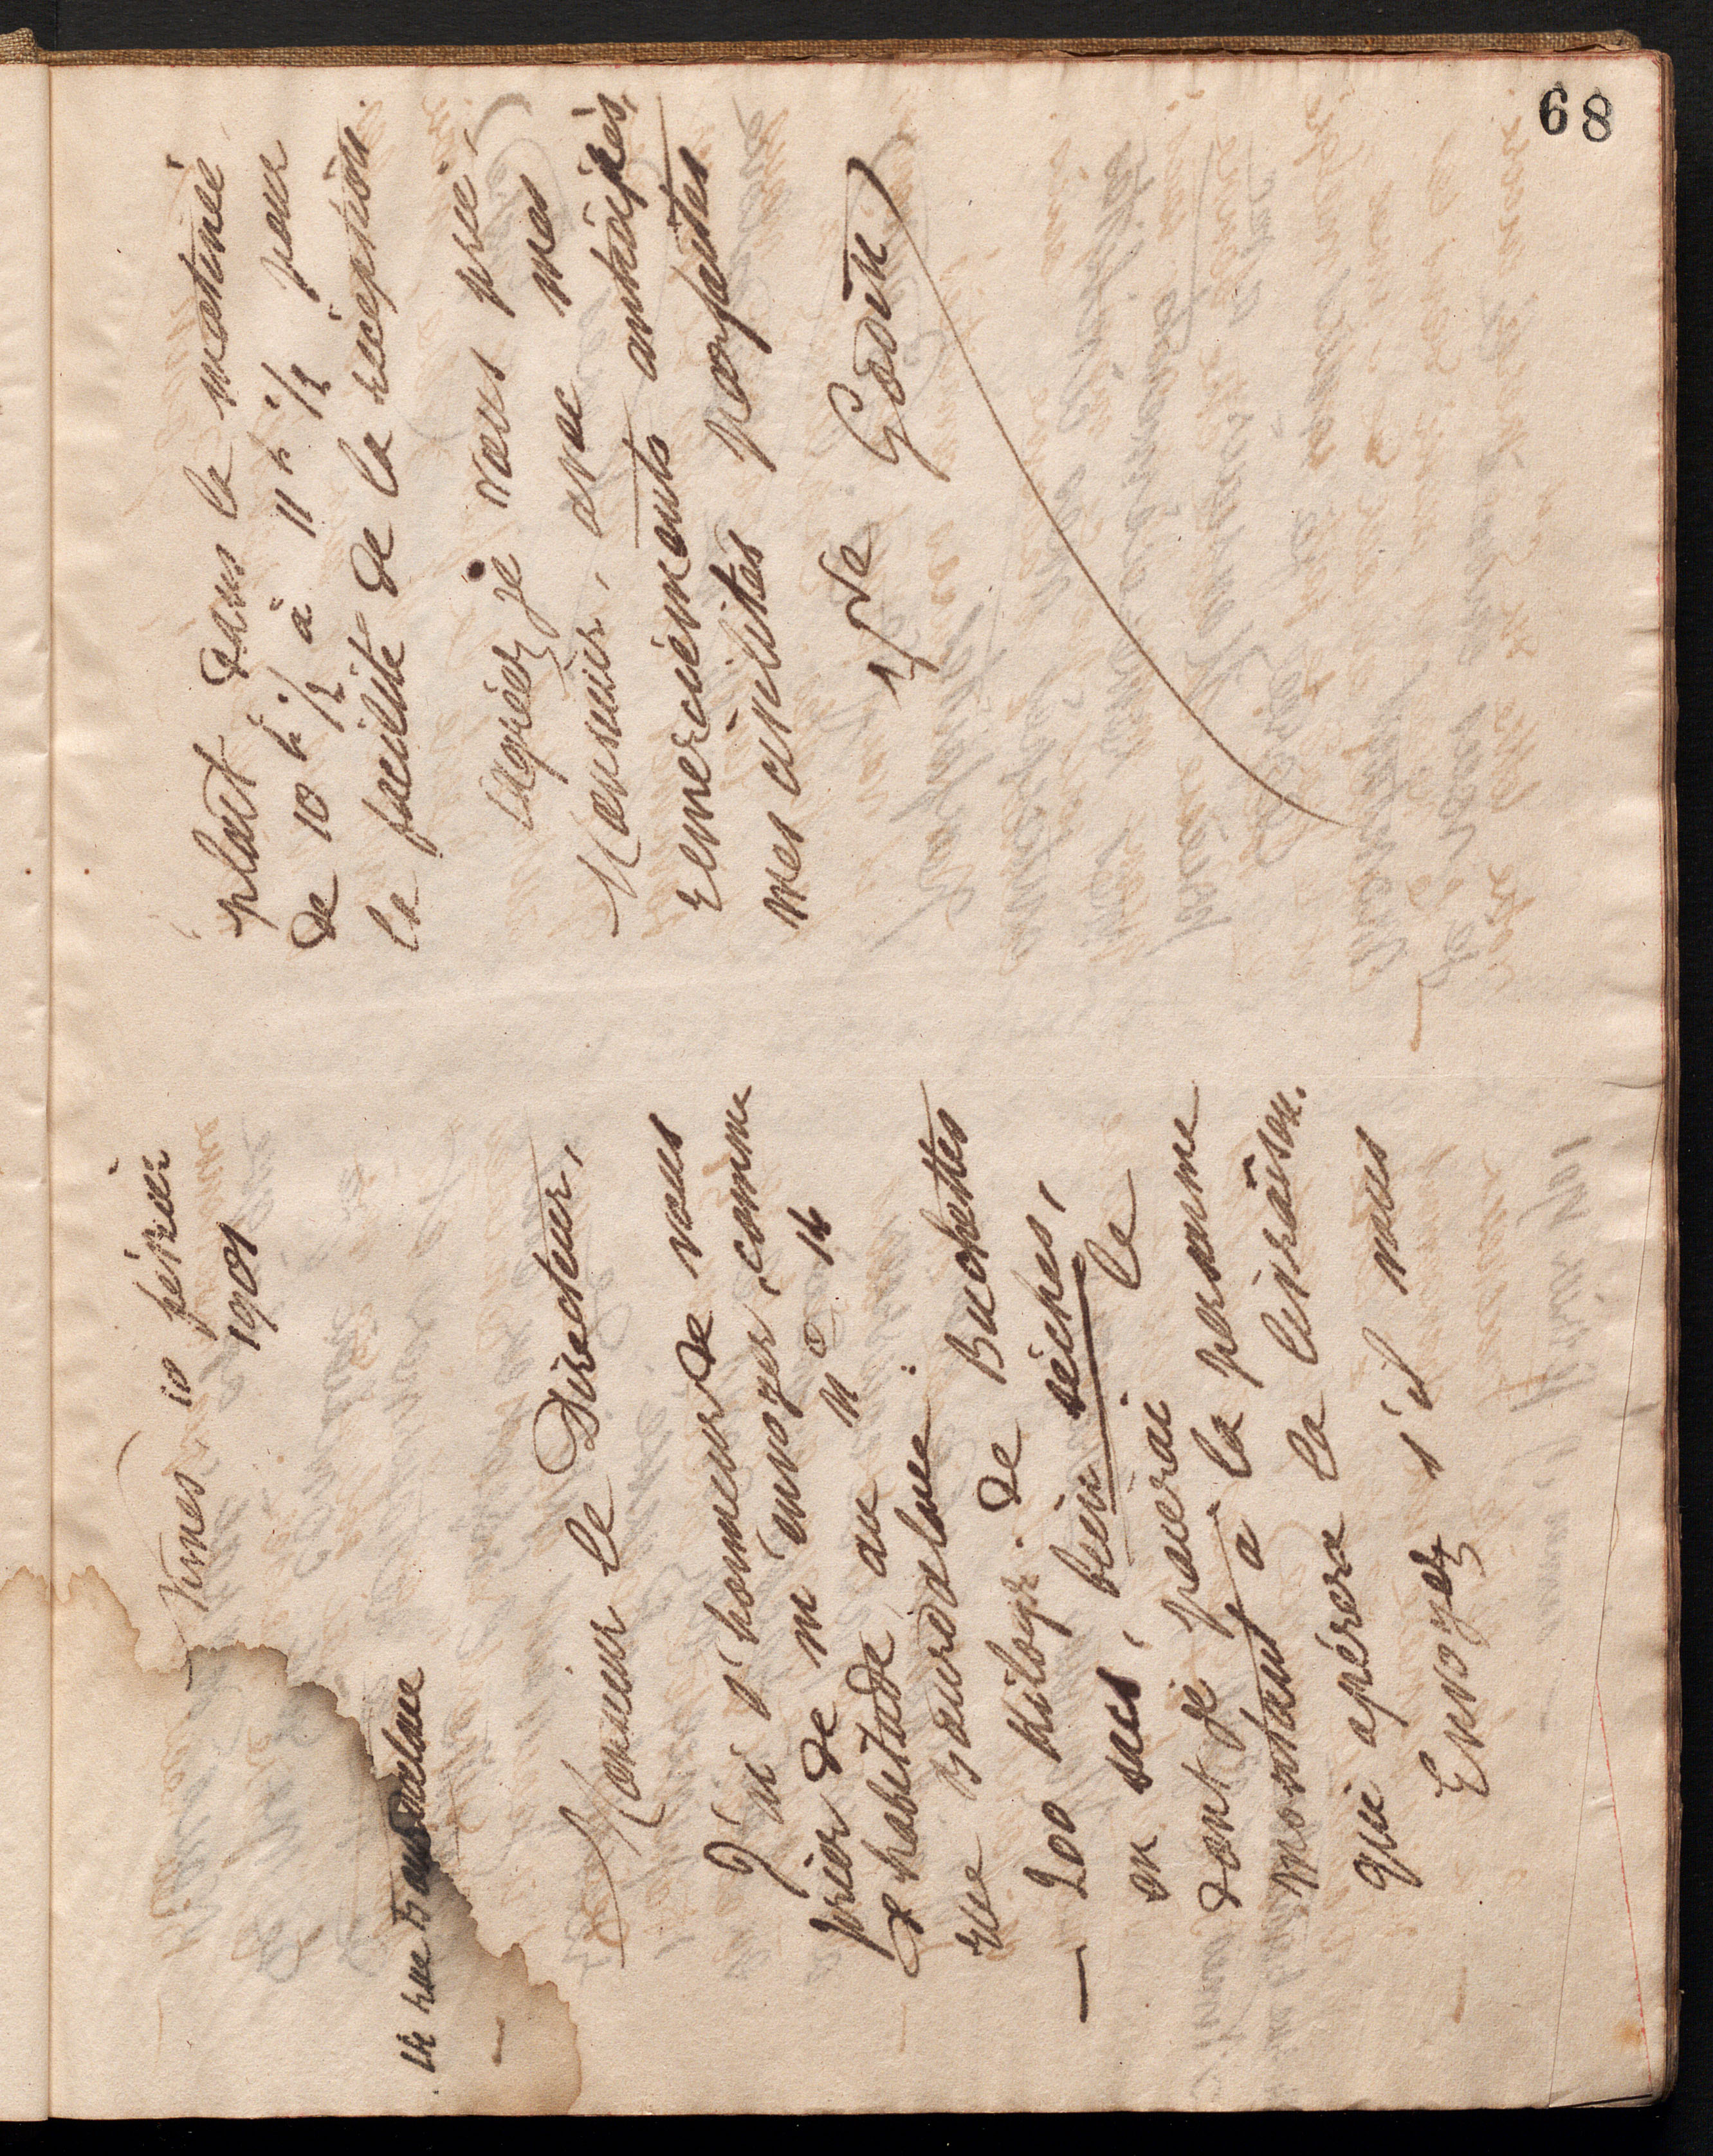 68
Nîmes 10 février
1901
14 rue Bourdaloue
Monsieur le Directeur,
J'ai l'honneur de vous
prier de m'envoyer, comme
d'habitude au n° 14
rue Bourdaloue : Buchettes
— 200 Kilogr. de
en sacs, bien sèches,
dont je paierai le
montant à la personne
qui opérera la livraison.
Envoyez s'il vous
plait dans la matinée
de 10 h 1/2 à 11 h 1/2 pour
la facilité de la réception
Agréez je vous prie,
Monsieur, avec mes
remerciements anticipés,
mes civilités parfaites
Vve Godin